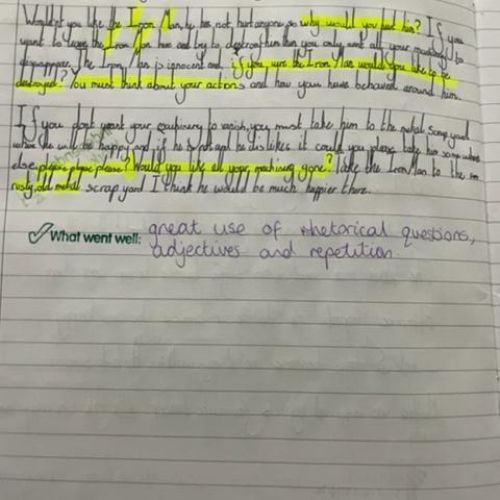 Wouldn't you like the Iron Man, he has not hurt anyone so why would you hurt him? If you
want to leave the Iron Man him and try to destroy him then you only want all your machinery to
disappear. The Iron Man is ignocent and if you were the Iron Man would you like to be
destroyed? You must think about your actions and how you have behaved around him.
If you don't want your machinery to vanish, you must take him to the metal scrap yard
where he will be happy and if he is not and he dislikes it could you please take him somewhere
else, please please please? Would you like all your machinery gone? Take the Iron Man to the
rusty, old metal scrap yard I think he would be much happier there.
What went well: great use of rhetorical questions,
adjectives and repetition.